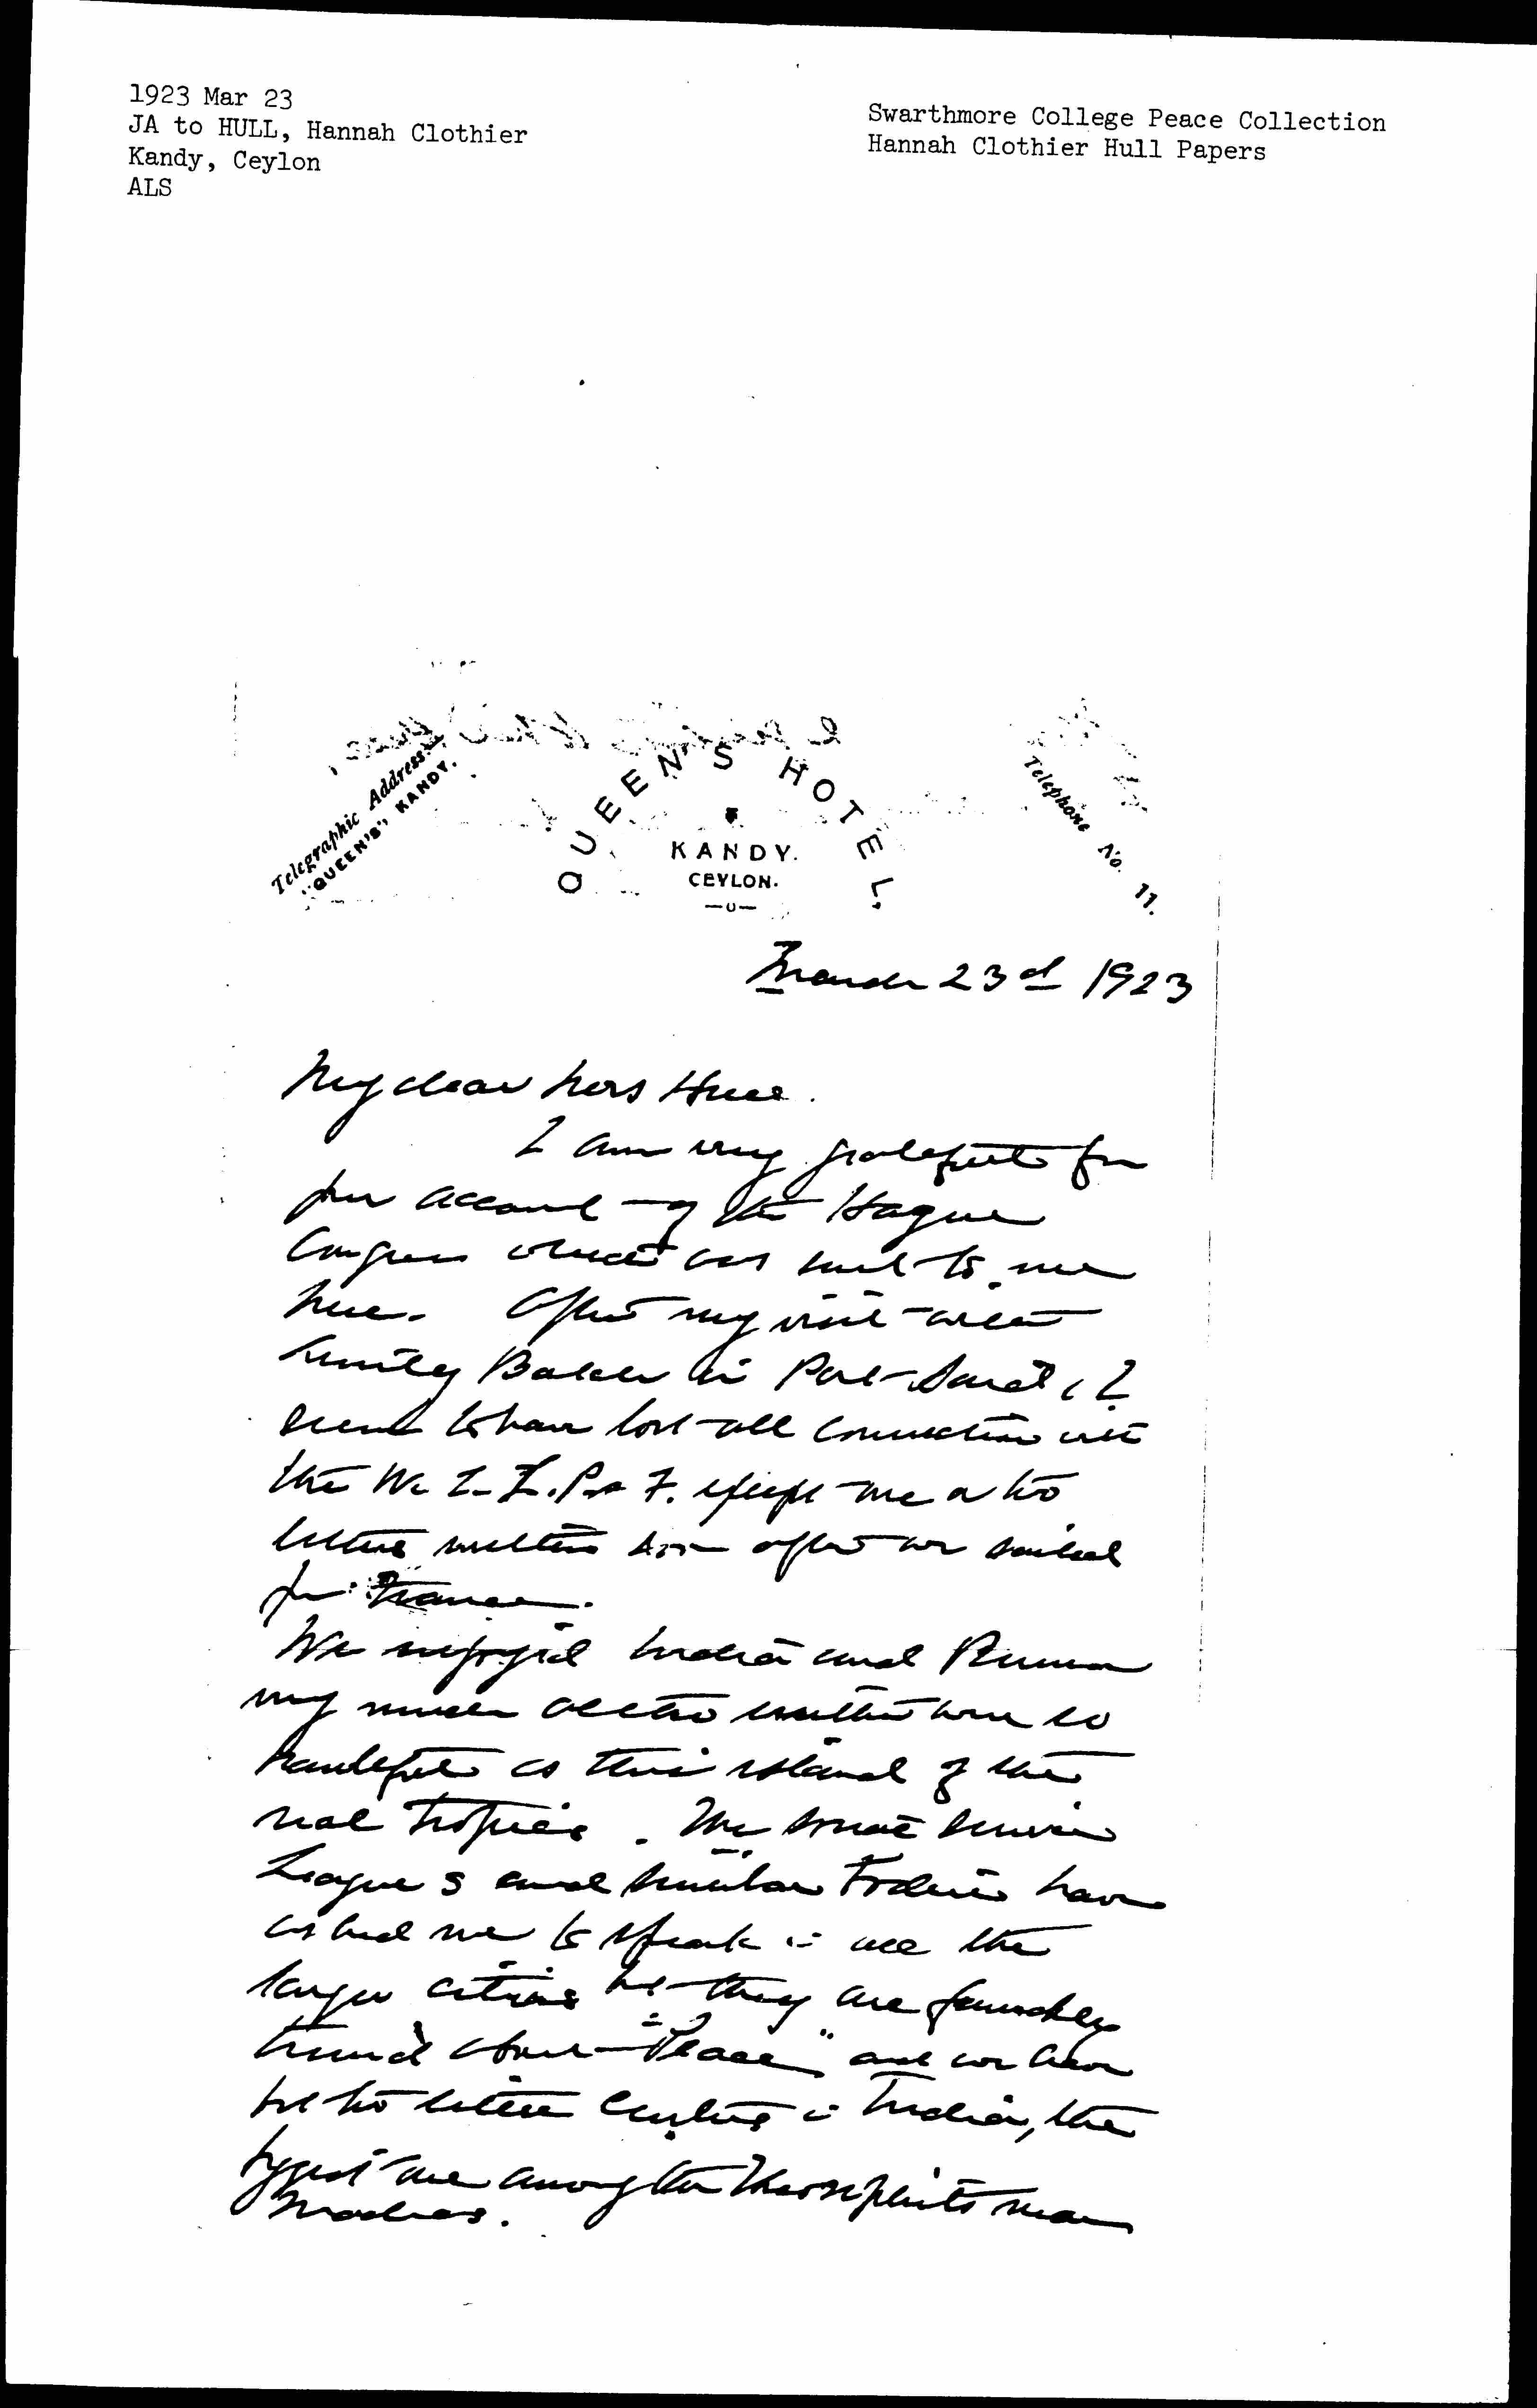 1923 Mar 23
JA to HULL, Hannah Clothier
Kandy, Ceylon
ALS
Swarthmore College Peace Collection
Hannah Clothier Hull Papers
Telegraphic Address:
"QUEEN'S", KANDY.
QUEEN'S HOTEL.
KANDY.
CEYLON.
Telephone No. 11.
March 23d 1923
My dear Mrs Hull.
I am very grateful for
your account of the Hague
Congress which was sent to me
here. After my visit with
Emily Balch in Port Said, I
seem to have lost all connection with
the W. I. L. P. & F. except one or two
letters written soon after we sailed
for France.
We enjoyed India and Burma
very much altho neither were so
beautiful as this island of the
real tropics. The Social Service
Leagues and similar bodies have
asked me to speak in all the
larger cities but they are
timid about "Peace" and we have
but two letter centers in India, the
biggest one among the Theosophists near
Madras.